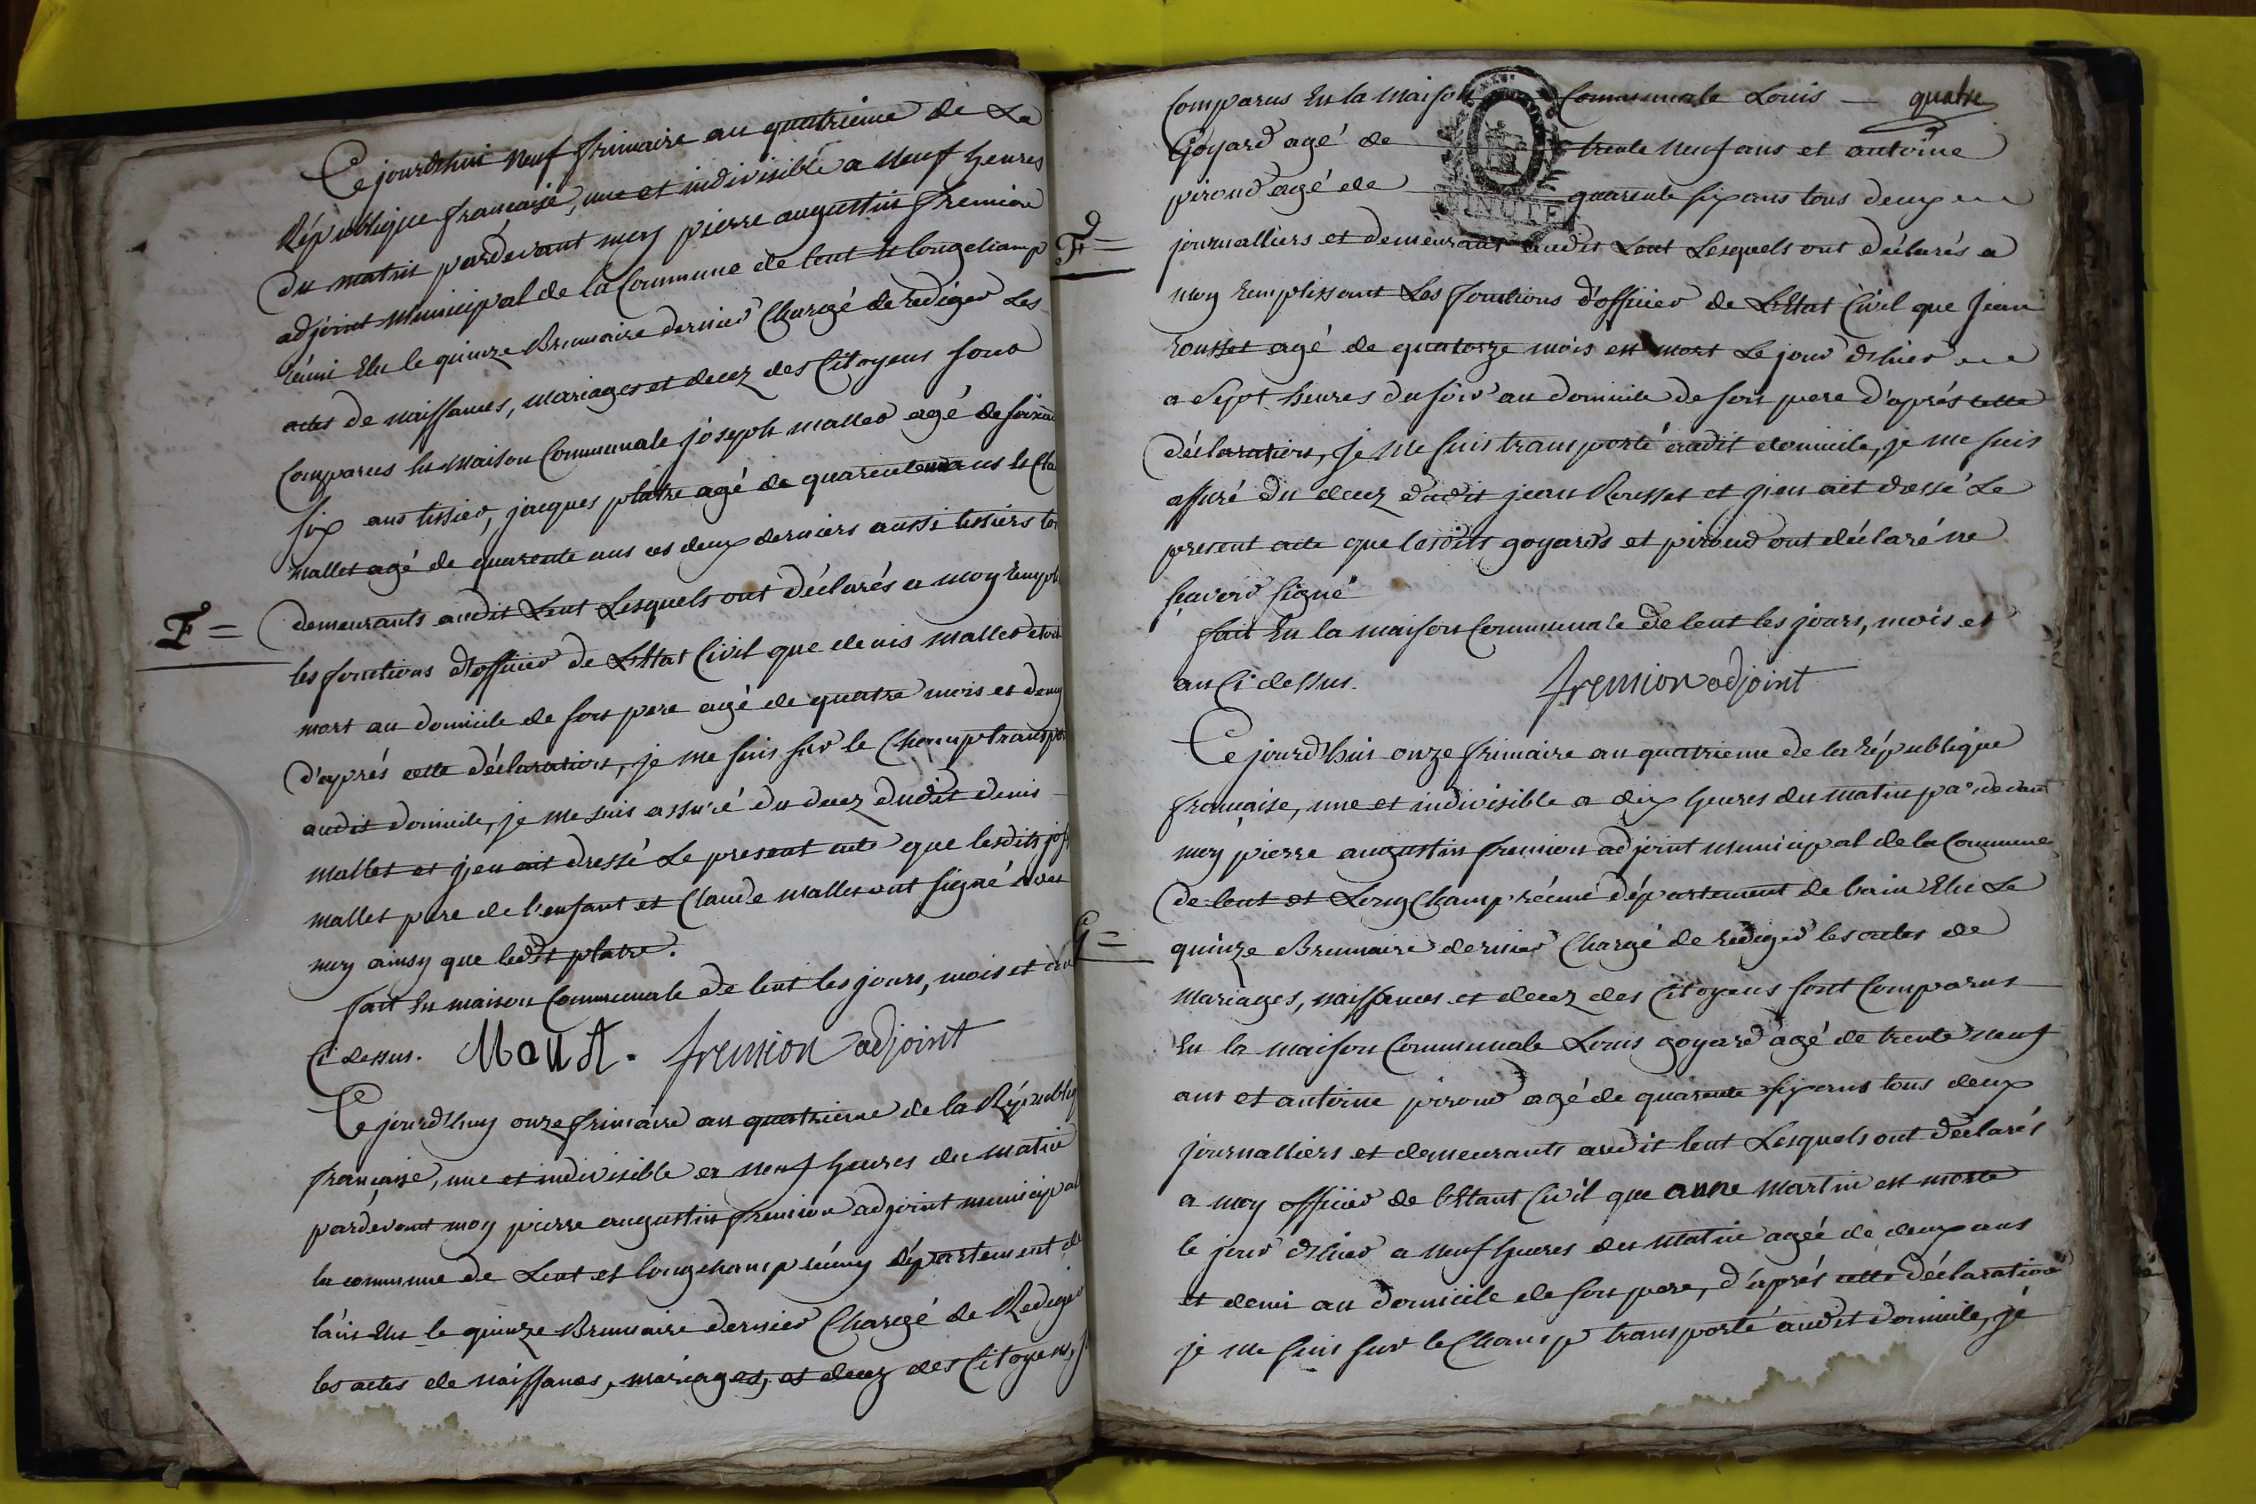 Ce jourdhui neuf frimaire an quatrieme de La
République française, une et indivisible a neuf heures
du matin pardevant moy pierre augustin fremion
adjoint municipal de la Commune de lent et longchamp
réuni Elu le quinze Brumaire dernier Chargé de rediger Les
actes de naissances, mariages et decez des Citoyens sont
Comparus En Maison Communale joseph mallet agé de soixante
six ans tissier, jacques platre agé de quarente ans et Cla
mallet agé de quarente ans ces deux derniers aussi tissiers to
demeurants audit Lent Lesquels ont déclarés a moy rempl
F =
les fonctions d'officier de L'Etat Civil que denis mallet etoit
mort au domicile de son pere agé de quatre mois et demy
d'aprés cette déclaration, je me suis sur le Champ transpor
audit domicile, je me suis assuré du decez dudit denis
mallet et j'en ait dressé Le present acte que lesdits jos
mallet pere de l'enfant et Claude mallet ont signé avec
moy ainsy que ledit platre.
fait En maison Communale de lent les jours, mois et an
Ci dessus. fremion adjoint
Ce jourd'huy onze frimaire an quatrieme de la Républiq
française, une et indivisible a neuf heures du matin
pardevant moy pierre augustin fremion adjoint municipal
la commune de Lent et longchamp réuny département de
l'ain Elu le quinze Brumaire dernier Chargé de Rediger
les actes de naissances, mariages, et decez des Citoyens, s
Comparus En la Maison Communale Louis — quatre
Goyard agé de trente neuf ans et antoine
piroud agé de quarente six ans tous deux
MINUTE
F =
journalliers et demeurant audit Lent Lesquels ont déclarés a
moy remplissant Les fonctions d'officier de L'Etat Civil que Jean
rousset agé de quatorze mois est mort Le jour d'hier
a Sept heures du soir au domicile de son pere d'aprés cette
déclaration, je me suis transporté audit domicile, je me suis
assuré du decez dudit jean Rousset et j'en ait dressé Le
present acte que lesdits goyards et piroud ont déclaré ne
sçavoir signé
fait En la maison Communale de lent les jours, mois et
an Ci dessus. fremion adjoint
Ce jourd'hui onze frimaire an quatrieme de la république
française, une et indivisible a dix heures du matin par devant
moy pierre augustin fremion adjoint municipal de la Commune
de lent et LongChamp réuni département de l'ain Elu Le
G =
quinze Brumaire dernier Chargé de rediger les actes de
mariages, naissances et decez des Citoyens sont Comparus
En la maison Communale Louis goyard agé de trente neuf
ans et antoine piroud agé de quarente six ans tous deux
journalliers et demeurants audit lent Lesquels ont déclarés
a moy officier de l'Etant Civil que anne martin est morte
le jour d'hier a neuf heures du matin agée de deux ans
et demi au domicile de son pere, d'aprés cette déclaration
je me suis sur le Champ transporté audit domicile, je